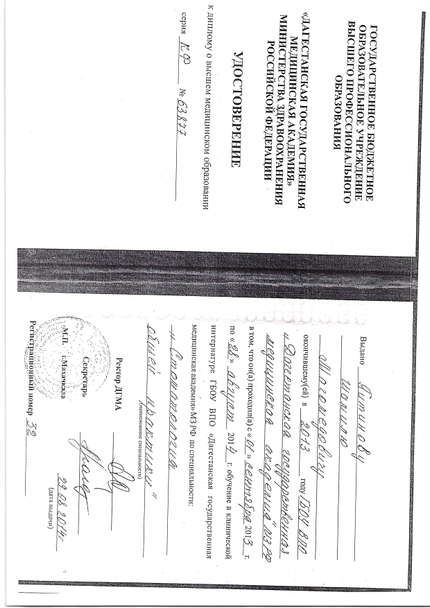 ГОСУДАРСТВЕННОЕ БЮДЖЕТНОЕ
ОБРАЗОВАТЕЛЬНОЕ УЧРЕЖДЕНИЕ
ВЫСШЕГО ПРОФЕССИОНАЛЬНОГО
ОБРАЗОВАНИЯ
«ДАГЕСТАНСКАЯ ГОСУДАРСТВЕННАЯ
МЕДИЦИНСКАЯ АКАДЕМИЯ»
МИНИСТЕРСТВА ЗДРАВООХРАНЕНИЯ
РОССИЙСКОЙ ФЕДЕРАЦИИ
УДОСТОВЕРЕНИЕ
к диплому о высшем медицинском образовании
серия КФ № 63827
Выдано
Шамилю
Магомедовичу
окончившему(ей) в 2013 году ГБОУ ВПО
«Дагестанская государственная
медицинская академия» МЗ РФ
в том, что он(а) проходил(а) с «01» сентября 2013 г.
по «28» август 2014 г. обучение в клинической
интернатуре ГБОУ ВПО «Дагестанская государственная
медицинская академия» МЗ РФ по специальности:
«Стоматология
(наименование специальности)
общей практики»
Ректор ДГМА
Секретарь
М.П. г.Махачкала 29.08.2014г
(дата выдачи)
Регистрационный номер 32